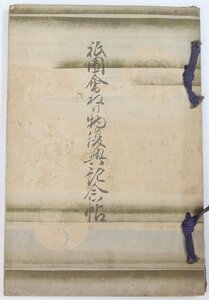 祇園會ねり物復興記念帖